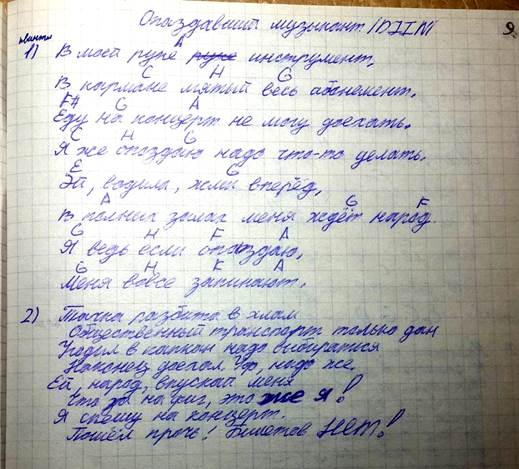 Опаздавший музыкант. /DIIN/ 9
квинты
1) В моей руке руке инструмент.
A
В кармане мятый весь абонемент.
C H G
Еду на концерт не могу доехать.
F# G A
Я же опоздаю надо что-то делать.
C H G
Эй, водила, жми вперёд,
E G
В полных залах меня ждёт народ.
A G F
Я ведь если опоздаю,
G H F A
Меня вовсе запинают.
G H F A
2) Тачка разбита в хлам
Общественный транспорт только дан
Угодил в капкан надо выбираться
Наконец доехал. Уф, надо же.
Ей, народ, впускай меня
Что за на фиг, это же я!
Я спешу на концерт.
Пошёл прочь! Билетов нет!